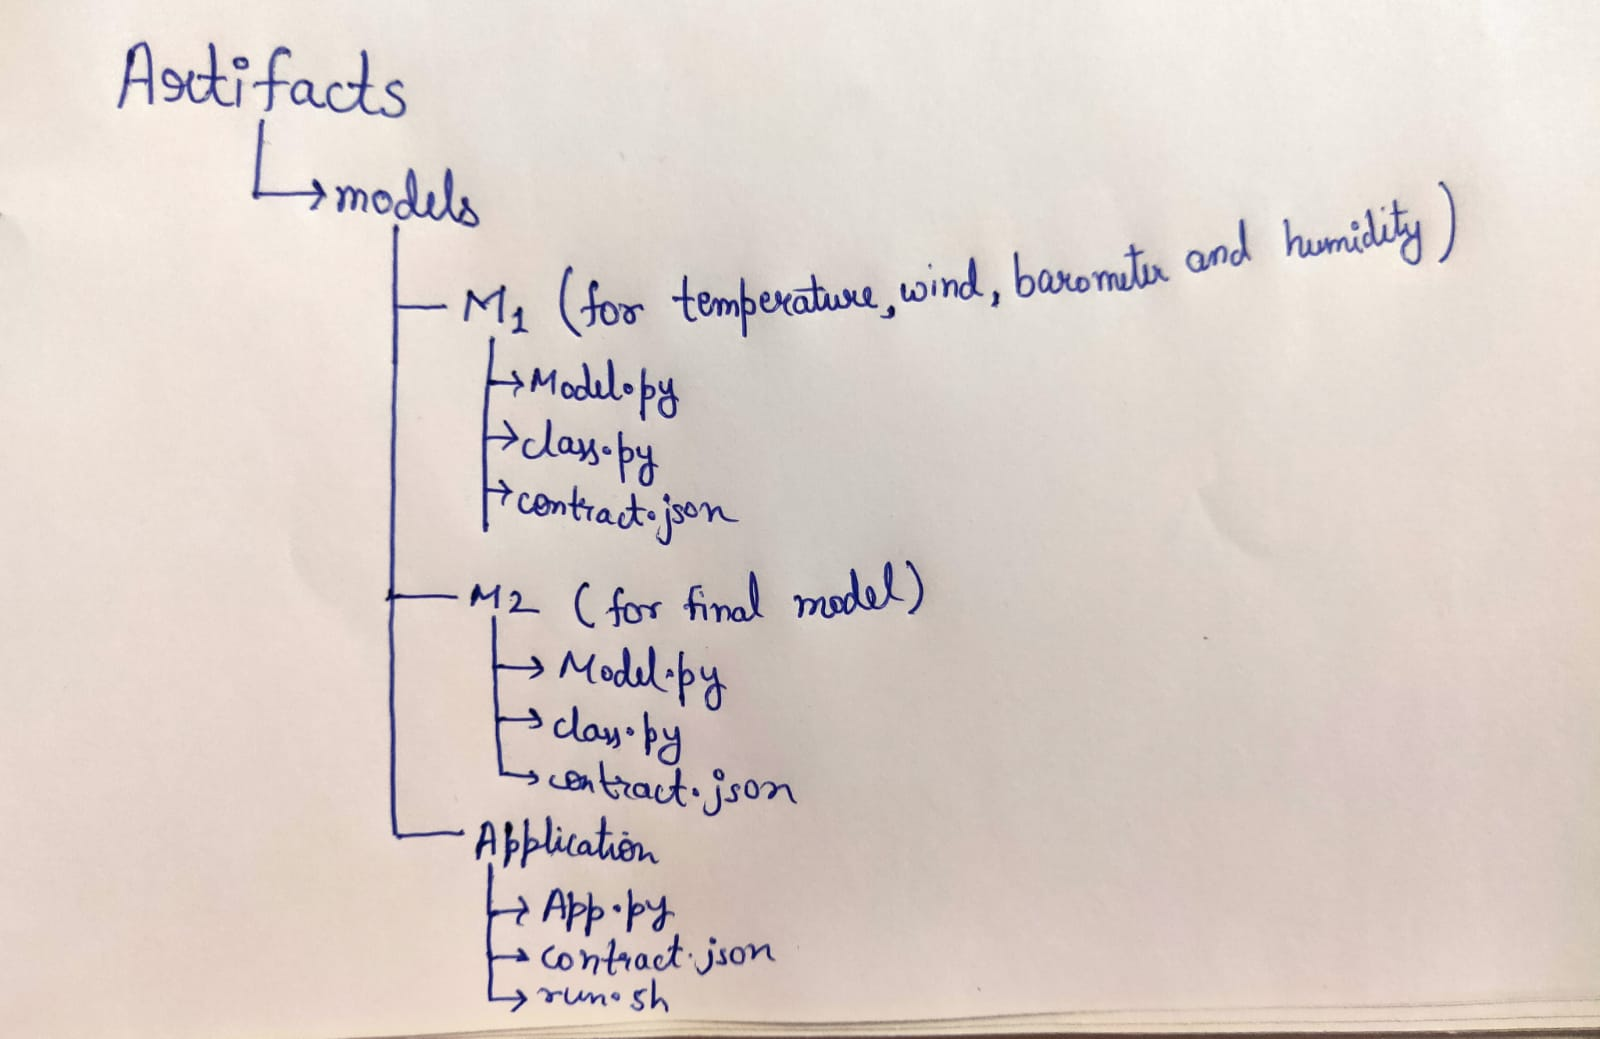 Artifacts
models
M1 (for temperature, wind, barometer and humidity)
Model.py
class.py
contract.json
M2 (for final model)
Model.py
class.py
contract.json
Application
App.py
contract.json
run.sh